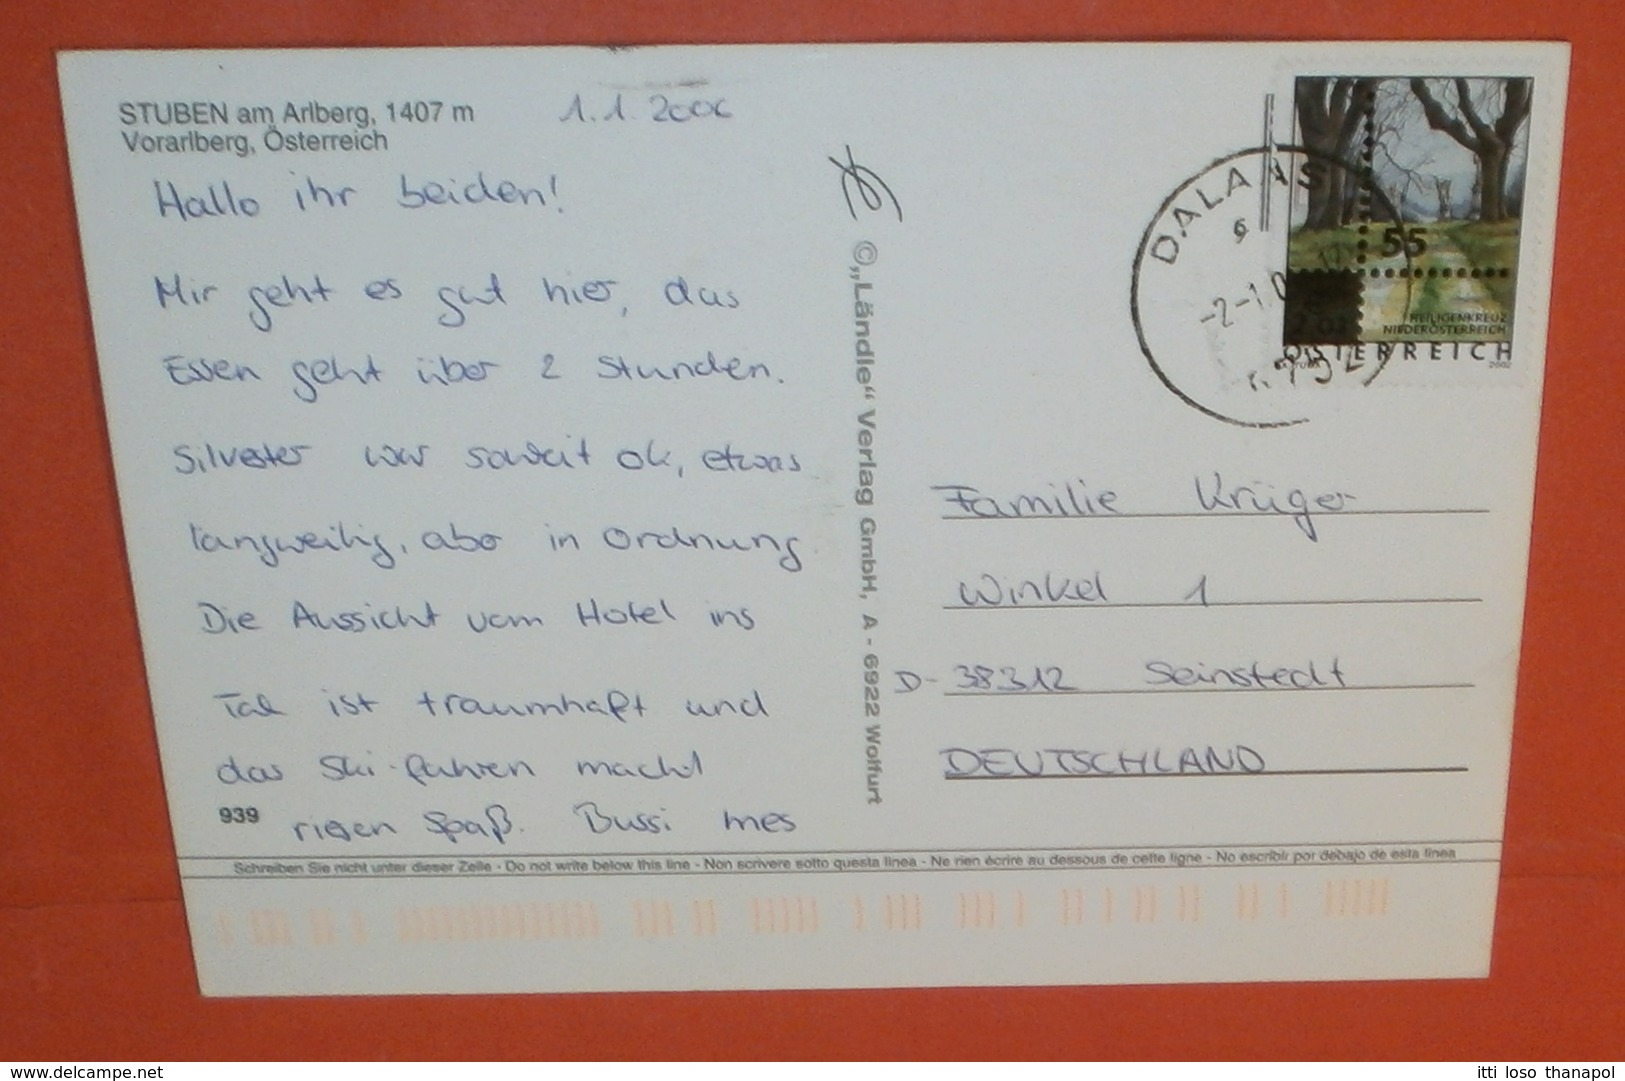 STUBEN am Arlberg, 1407 m
Vorarlberg, Österreich
1.1.2006
Hallo ihr beiden!
Mir geht es gut hier, das
Essen geht über 2 Stunden.
Silvester war soweit ok, etwas
langweilig, aber in Ordnung
Die Aussicht vom Hotel ins
Tal ist traumhaft und
das Ski-fahren macht
riesen Spaß. Bussi Ines
939
©„Ländle“ Verlag GmbH, A - 6922 Wolfurt
DALAAS
55
HEILIGENKREUZ
NIEDERÖSTERREICH
ÖSTERREICH
2002
Familie Krüger
Winkel 1
D-38312 Seinstedt
DEUTSCHLAND
Schreiben Sie nicht unter dieser Zeile - Do not write below this line - Non scrivere sotto questa linea - Ne rien écrire au dessous de cette ligne - No escribir por debajo de esta línea
www.delcampe.net
itti loso thanapol